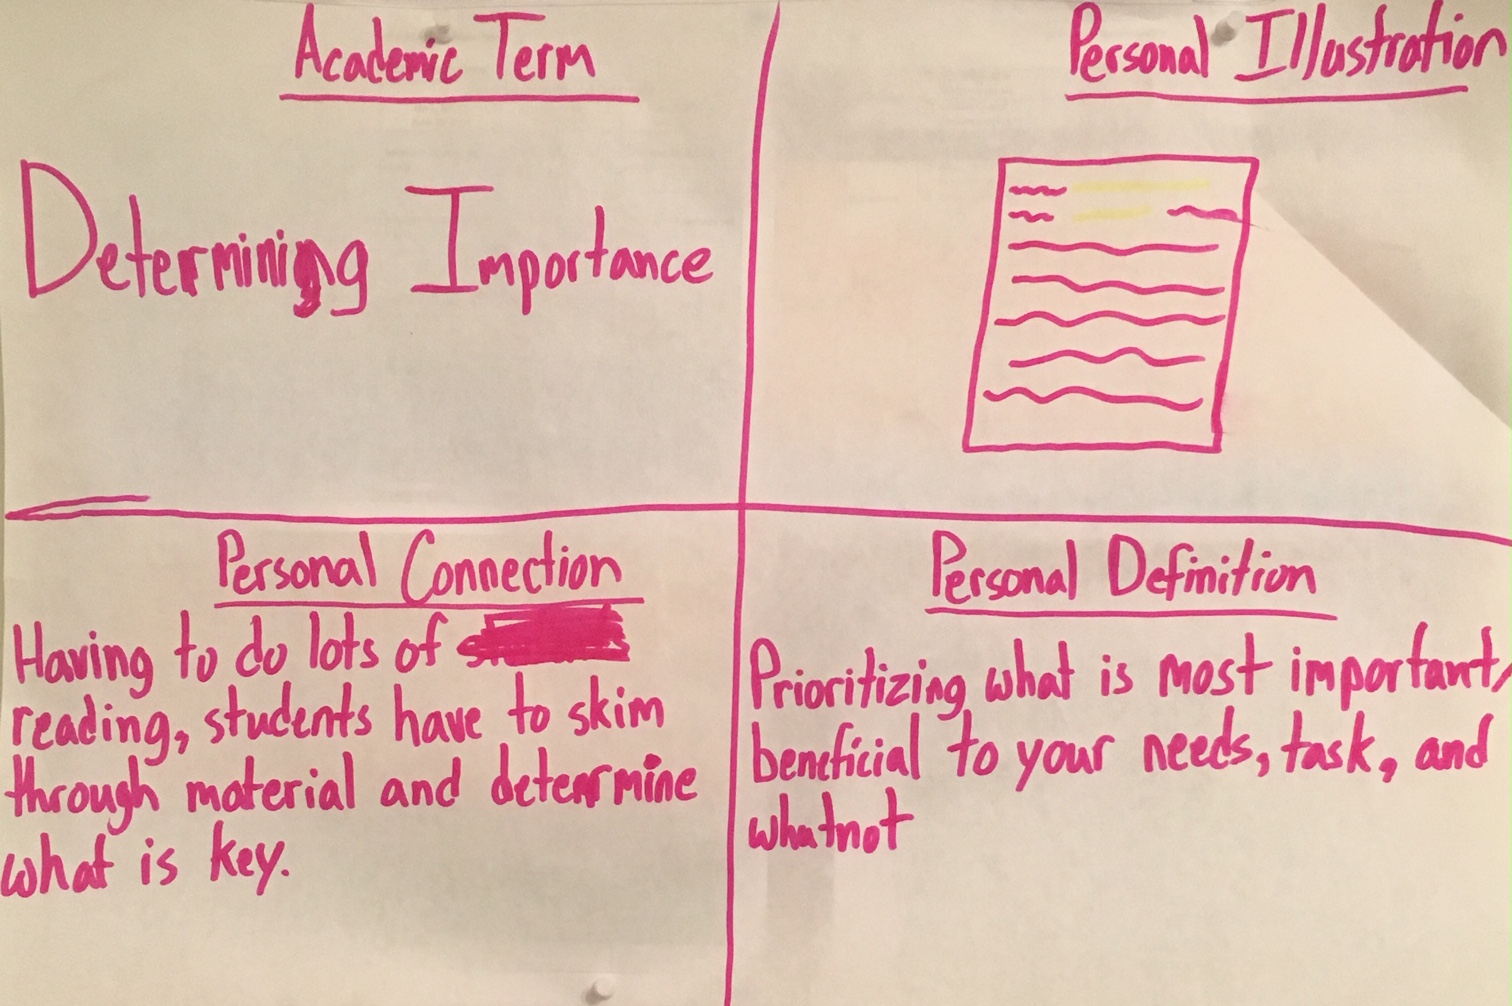 Academic Term
Determining Importance
Personal Illustration
Personal Connection
Having to do lots of
reading, students have to skim
through material and determine
what is key.
Personal Definition
Prioritizing what is most important/
beneficial to your needs, task, and
whatnot